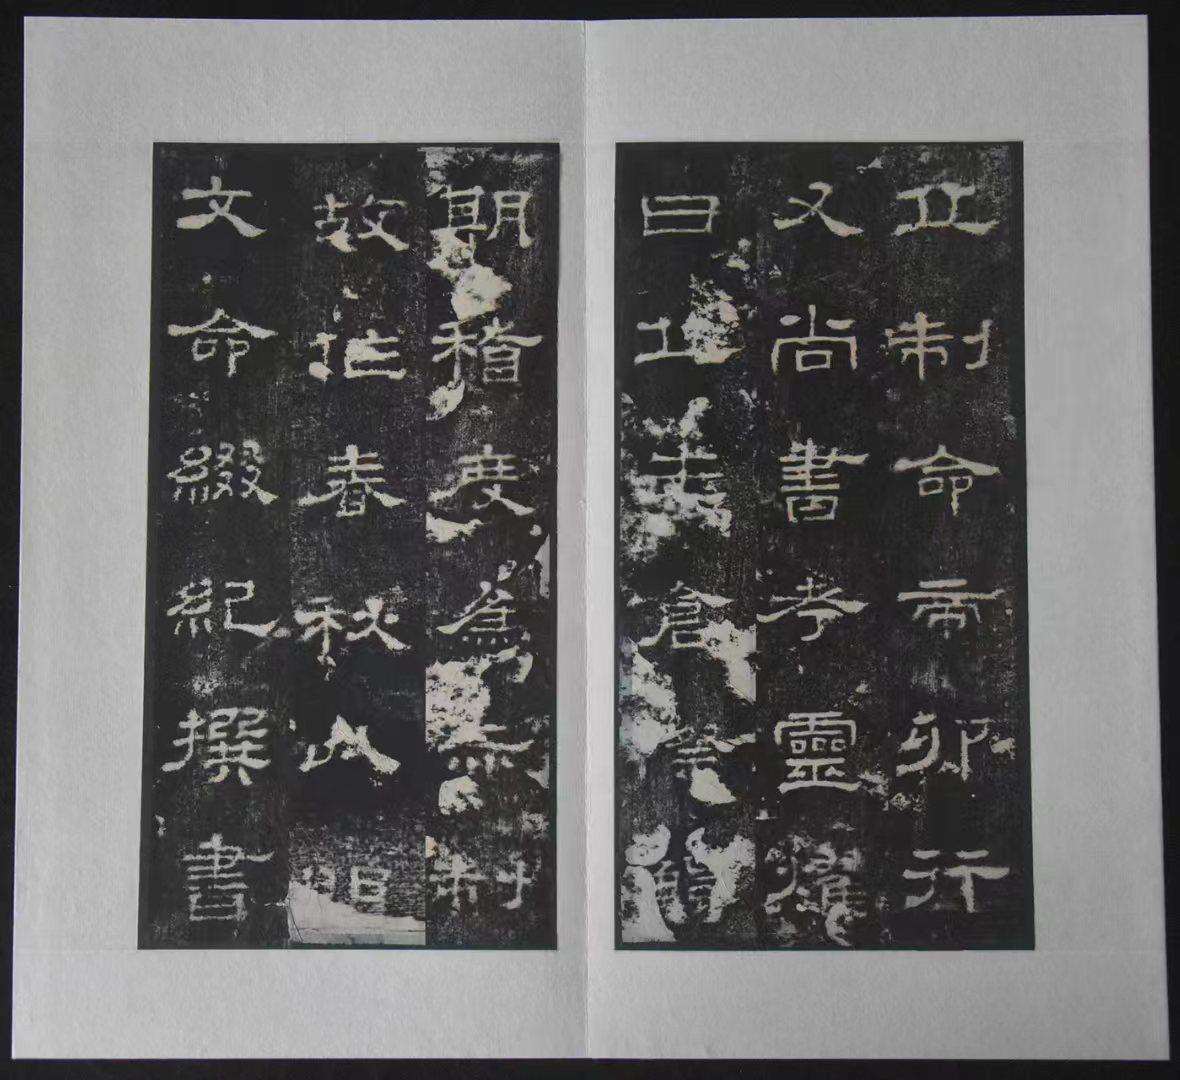 丘制命帝卯行
又尚書考靈燿
曰丘生倉際觸
期稽度為赤制
故作春秋以明
文命綴紀撰書